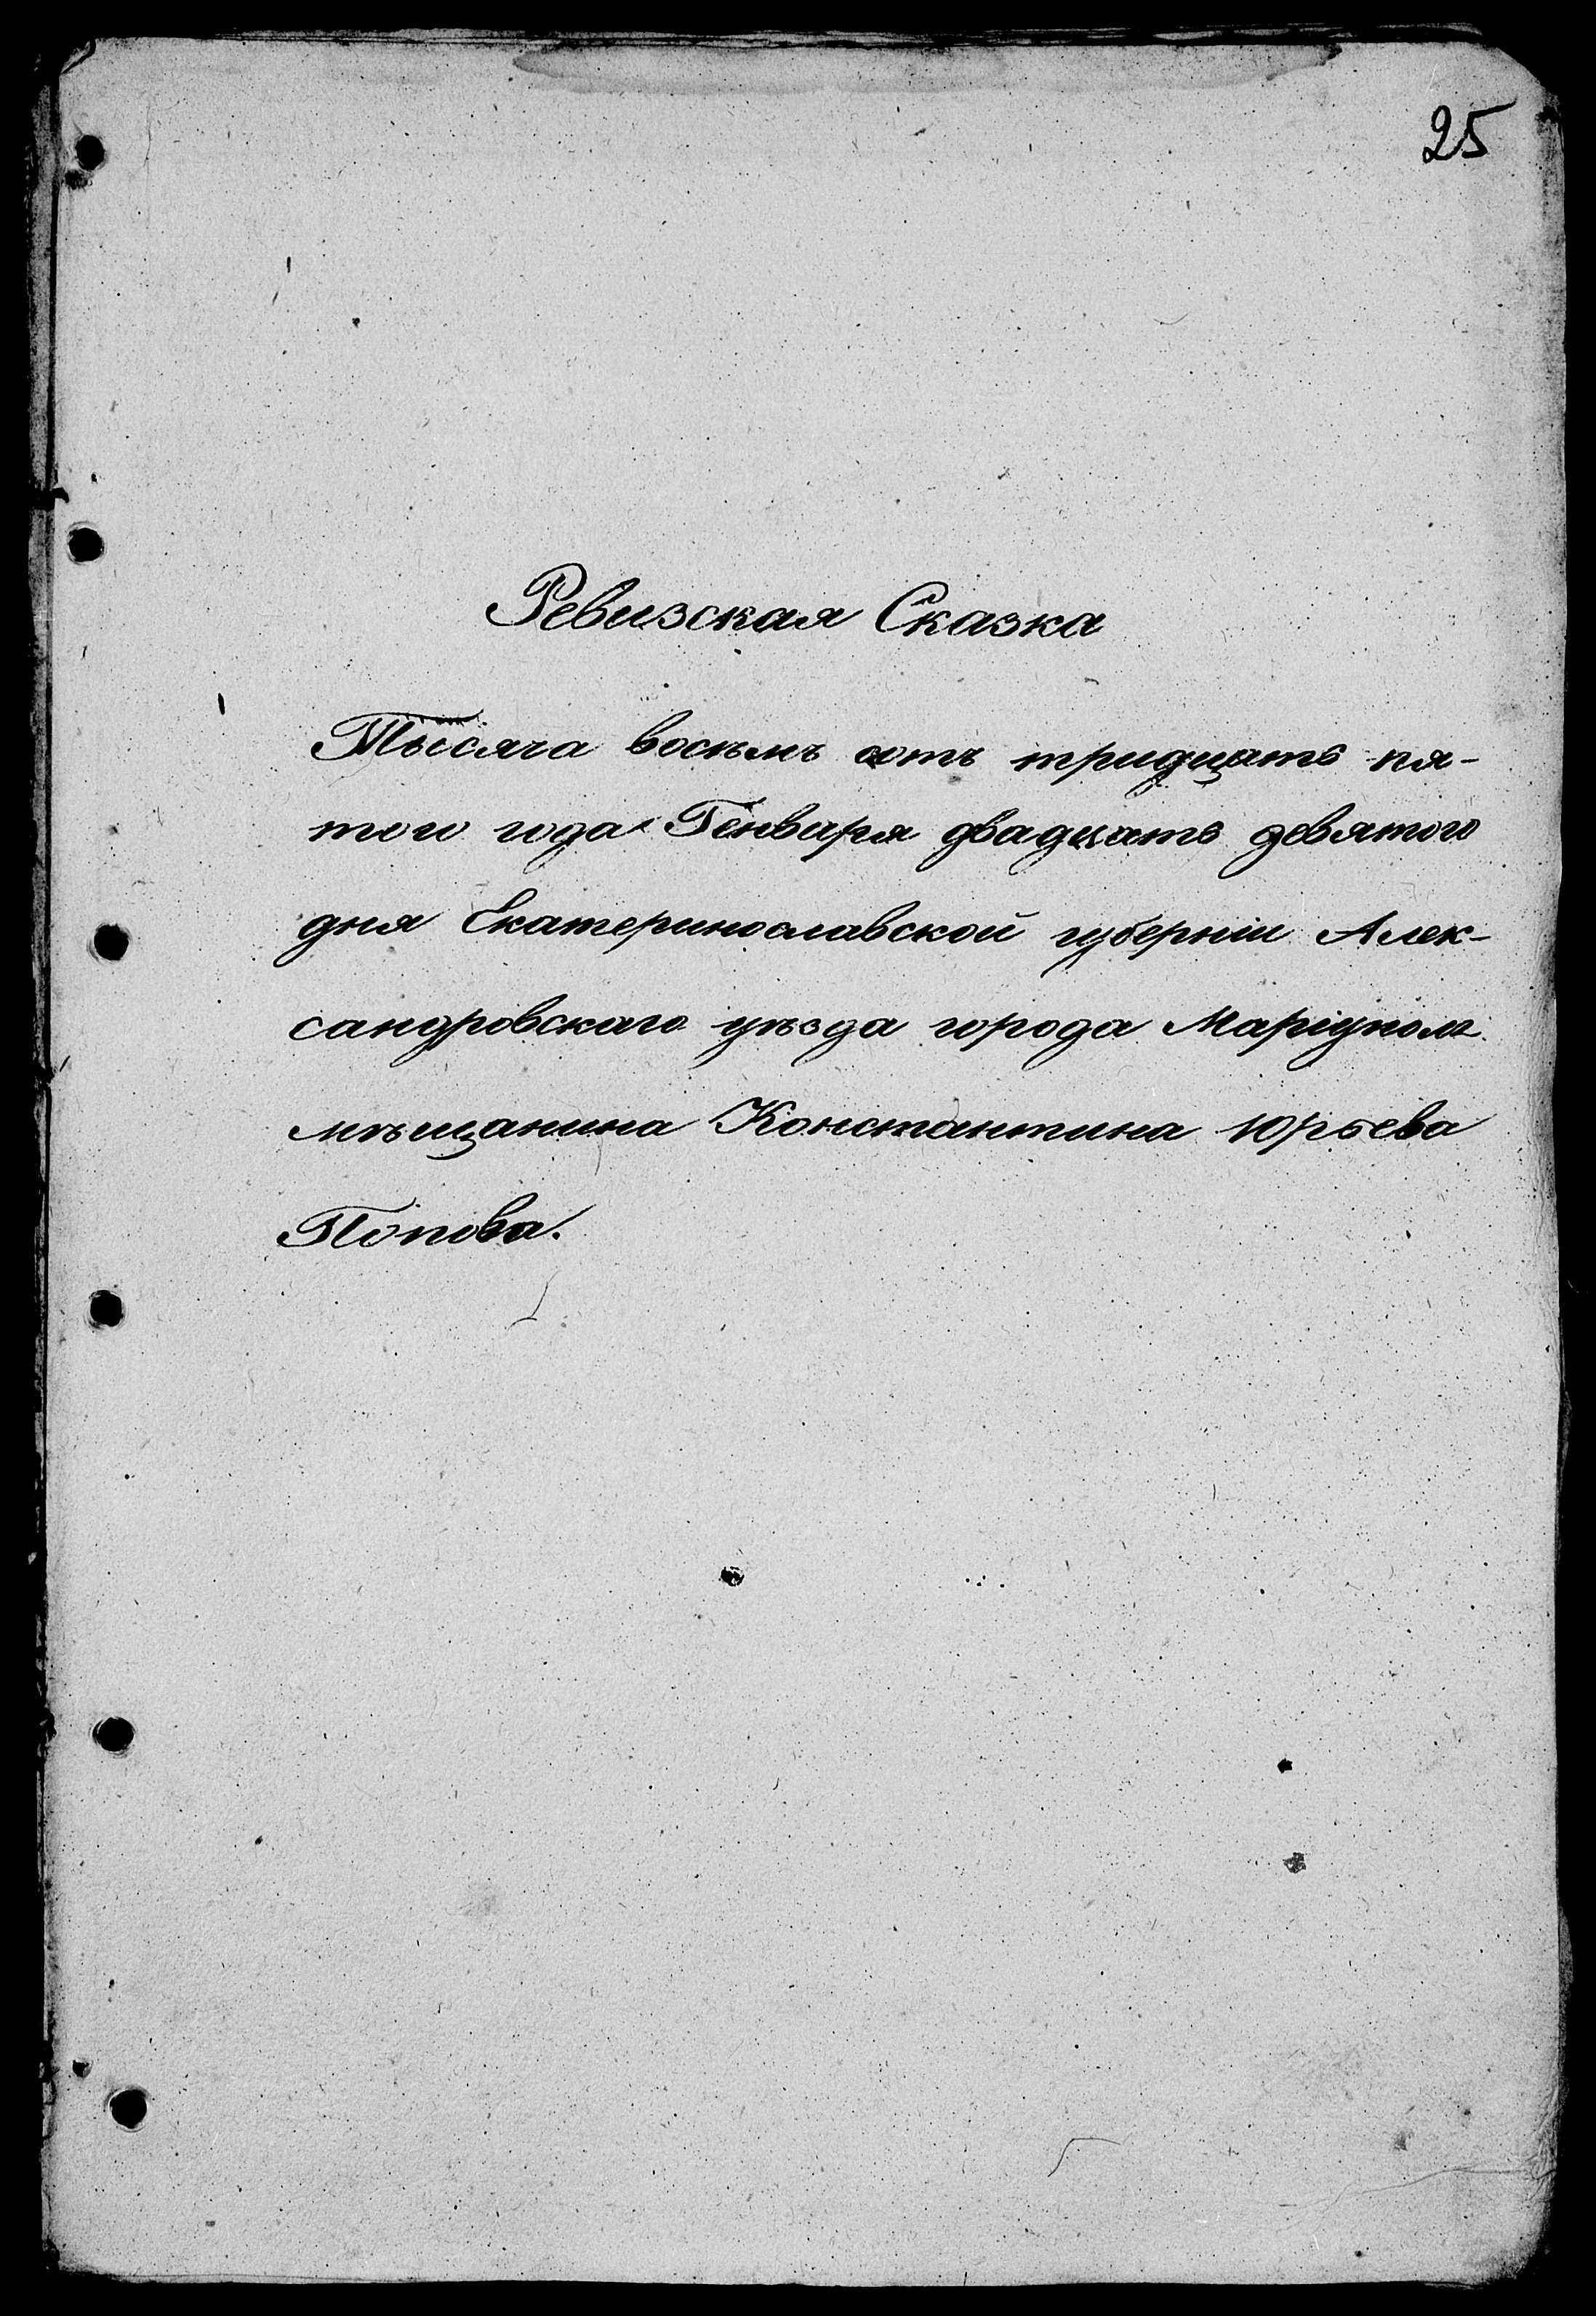 25
Ревизская Сказка
Тысяча восемь сотъ тридцать пя-
того года Генваря двадцать девятого
дня Екатеринославской губернiи Алек-
сандровскаго уѣзда города Марiуполя
мѣщанина Константина Юрьева
Попова.